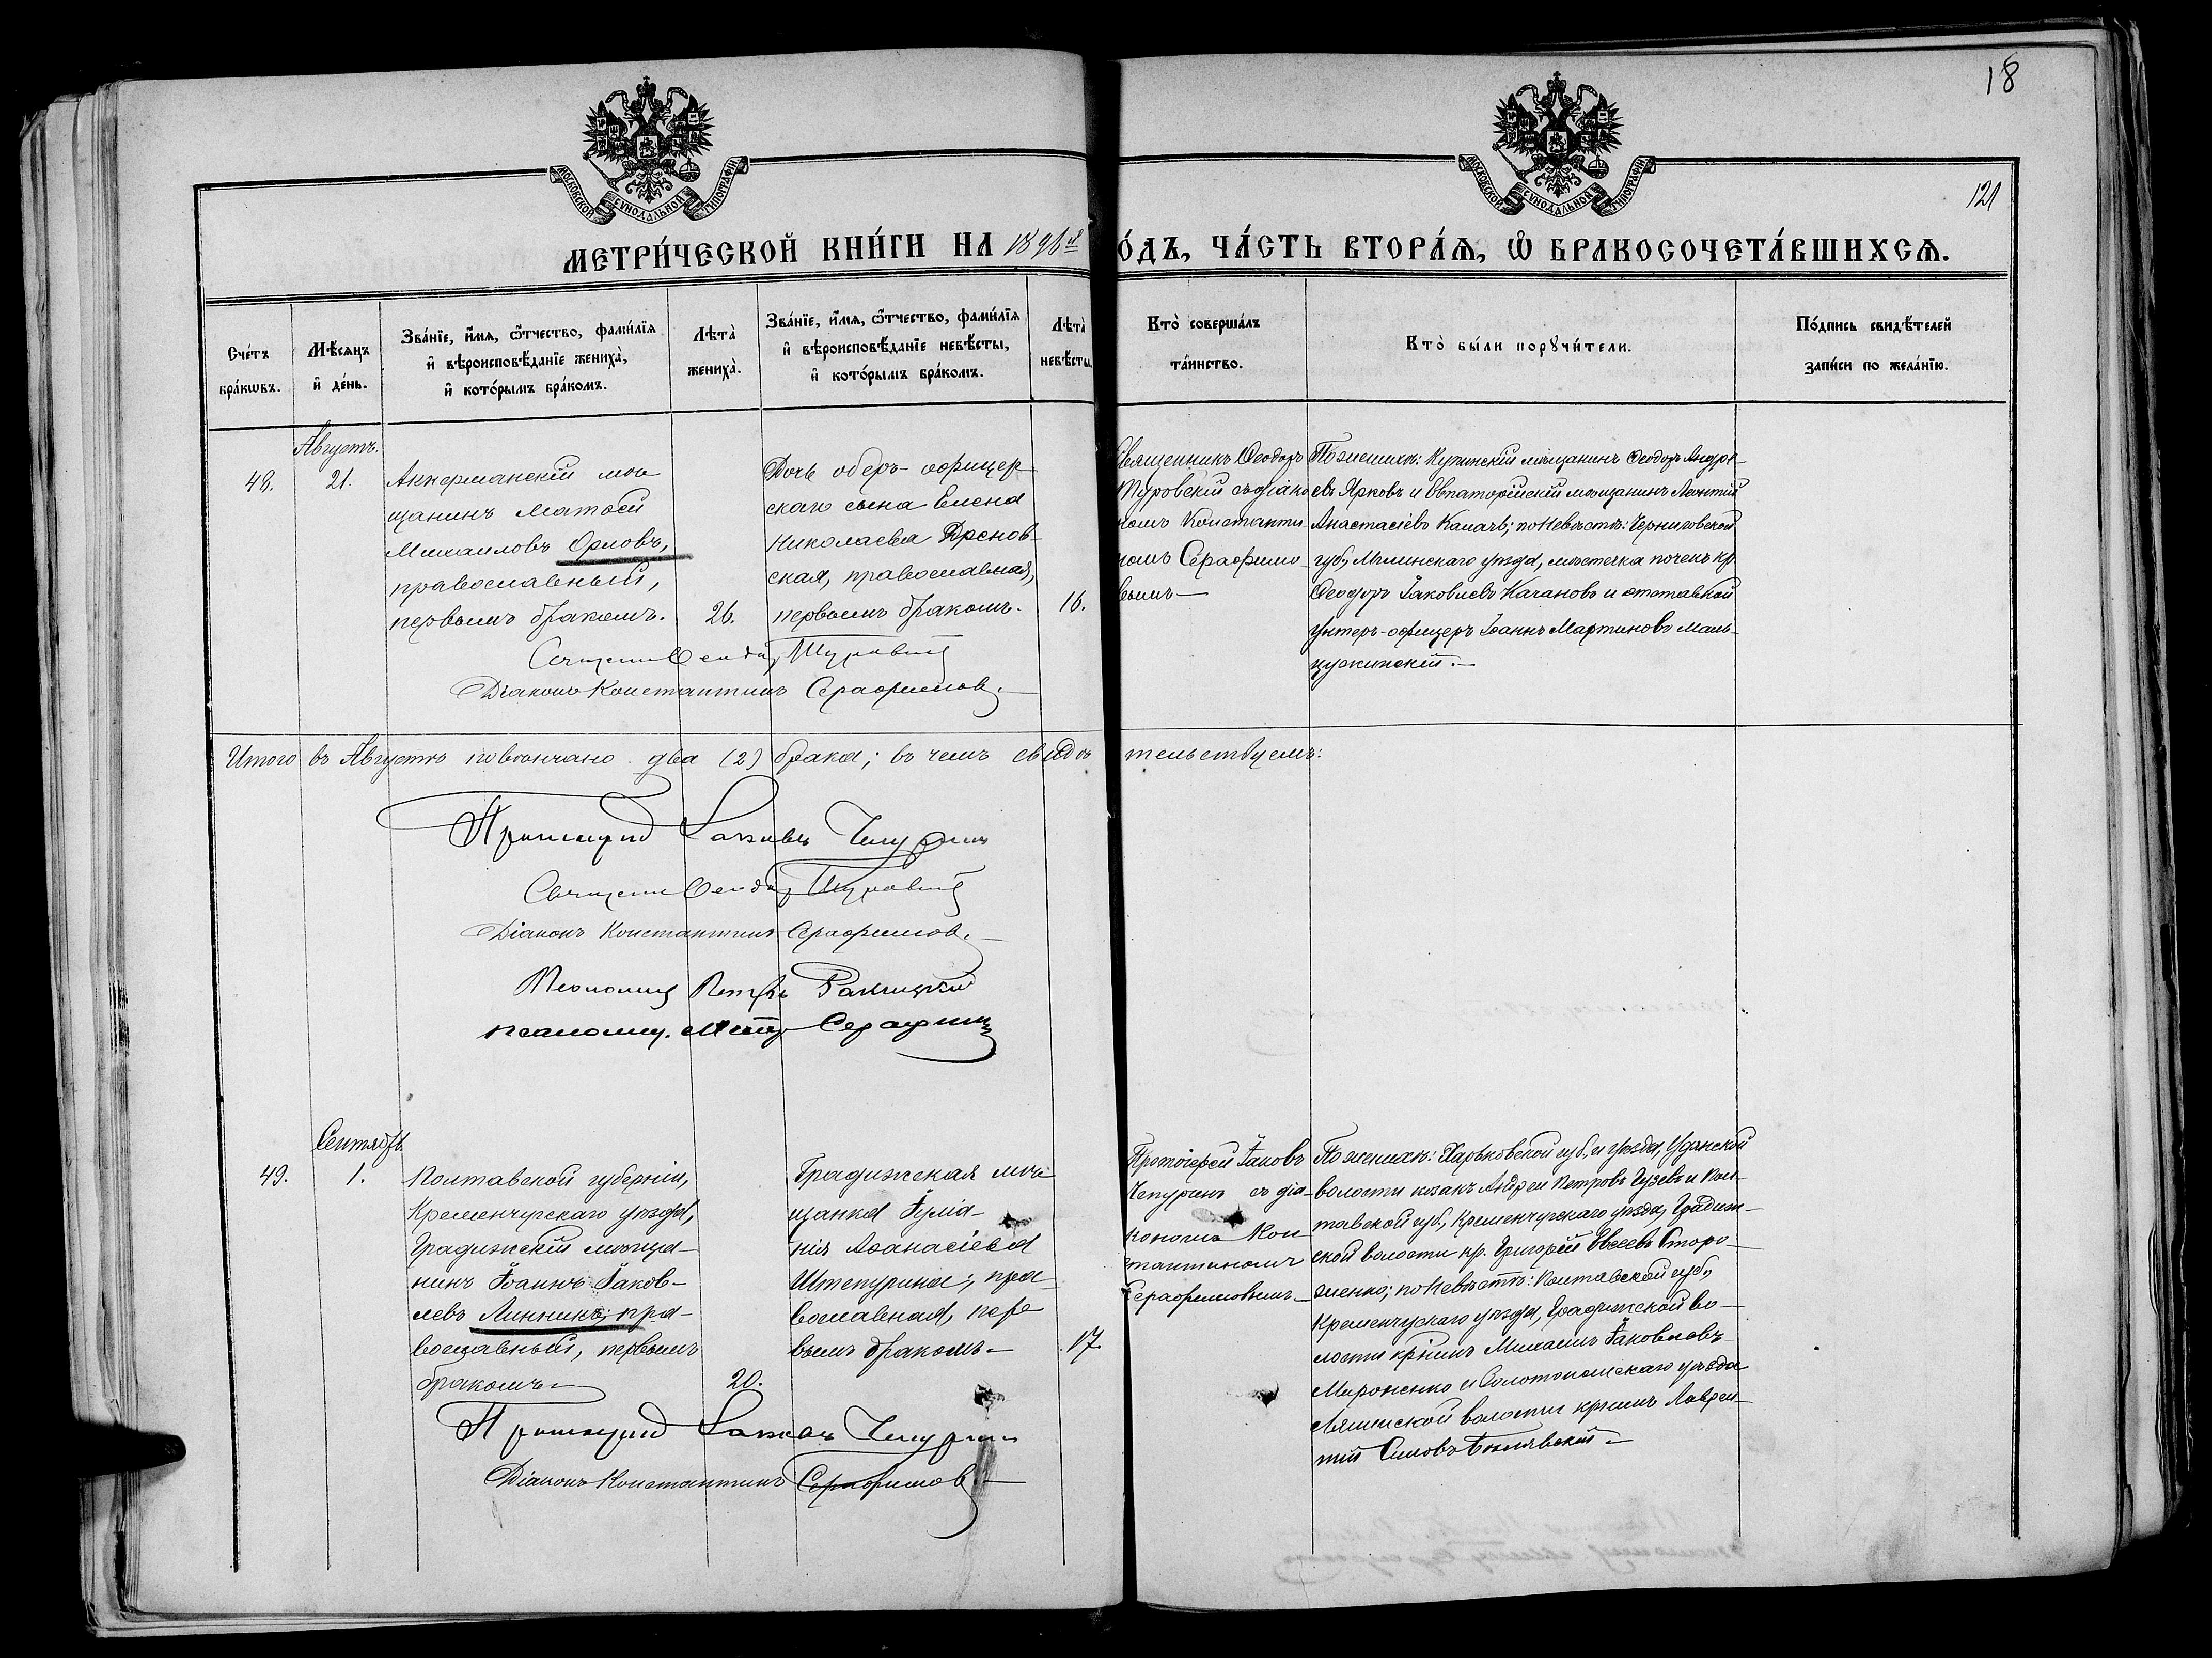 18
121
МОСКОВСКОЙ СУНОДАЛЬНОЙ ТИПОГРАФІИ
МОСКОВСКОЙ СУНОДАЛЬНОЙ ТИПОГРАФІИ
МЕТРИ́ЧЕСКОЙ КНИ́ГИ НА 1898й
О́ДЪ, ЧА́СТЬ ВТОРА́Ѧ, Ѽ БРАКОСОЧЕТА́ВШИХСѦ.
Сче́тъ
бра́кѡвъ.
Мѣ́сѧцъ
и҆ де́нь.
Зва́нїе, и҆́мѧ, ѻ҆́тчество, фами́лїѧ
и҆ вѣроисповѣ́данїе жениха̀,
и҆ кото́рымъ бра́комъ.
Лѣта̀
жениха̀.
Зва́нїе, и҆́мѧ, ѻ҆́тчество, фами́лїѧ
и҆ вѣроисповѣ́данїе невѣ́сты,
и҆ кото́рымъ бра́комъ.
Лѣта̀
невѣ́сты.
Кто̀ соверша́лъ
та́инство.
Кто̀ бы́ли порꙋчи́тели.
По́дпись свидѣ́телей
запи́си по жела́нїю.
Августъ.
48.
21.
Аккерманскій мѣ-
щанинъ Матѳей
Михаиловъ Орловъ,
православный,
первымъ бракомъ.
26.
Дочь оберъ-офицер-
скаго сына Елена
Николаева
ская, православная,
первымъ бракомъ.
16.
Священникъ Ѳеодоръ
Туровскій съ діако
номъ Константи-
номъ Серафимо-
вымъ
По женихѣ: мѣщанинъ Ѳеодоръ Андре-
евъ Ярковъ и Евпаторійскій мѣщанинъ Леонтій
Анастасіевъ Калачъ; по невѣстѣ: Черниговской
губ., Мглинскаго уѣзда, мѣстечка Почепъ кр.
Ѳеодоръ Іаковлевъ Качановъ и отставной
унтеръ-офицеръ Іоаннъ Мартиновъ Маль-
цужинскій.
Священ Ѳеодоръ Туровскій
Діаконъ Константинъ Серафимовъ.
Итого въ Августѣ повѣнчано два (2) брака; въ чемъ свидѣ
тельствуемъ:
Протоіерей Іаковъ Чепуринъ
Священ Ѳеодоръ Туровскій
Діаконъ Константинъ Серафимовъ.
Псаломщ Петръ Ракицкій
псаломщ. Серафим
Сентябрь
49.
1.
Полтавской губерніи,
Кременчугскаго уѣзда,
Градижскій мѣща-
нинъ Іоаннъ Іаков-
левъ Линникъ; пра-
вославный, первымъ
бракомъ
20.
Градижская мѣ-
щанка Іуліа-
нія Аѳанасіева
Штепурина; пра-
вославная, пер-
вымъ бракомъ
17.
Протоіерей Іаковъ
Чепуринъ съ діа-
кономъ Кон
стантиномъ
Серафимовымъ
По женихѣ: Харьковской губ. и уѣзда, Удянской
волости козакъ Андрей Петровъ Гузевъ и Пол-
тавской губ., Кременчугскаго уѣзда, Градиж-
ской волости кр. Григорій Евсеевъ Сторо-
женко; по невѣстѣ: Полтавской губ.,
Кременчугскаго уѣзда, Градижской во-
лости крнинъ Михаилъ Іаковлевъ
Мироненко и Золотоношскаго уѣзда
Ляшенской волости крнинъ Лаврен-
тій Симовъ Бѣлявскій
Протоіерей Іаковъ Чепуринъ
Діаконъ Константинъ Серафимовъ